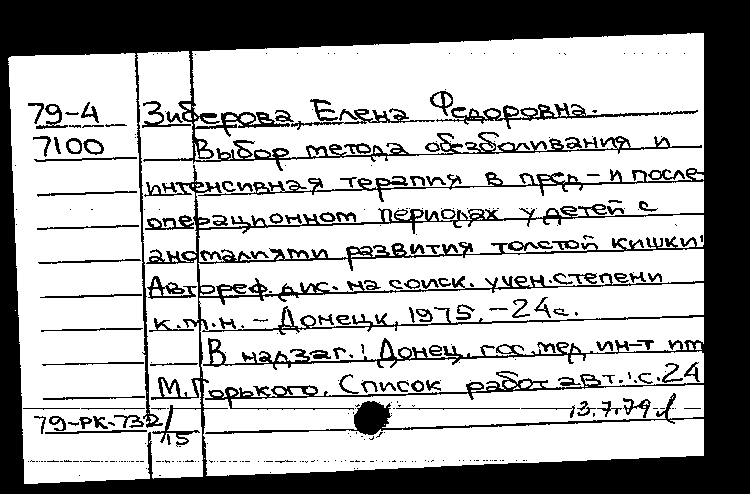 79-4 Зиберова, Елена Федоровна.
7100 Выбор метода обезболивания и
интенсивная терапия в пред- и после-
операционном периодах у детей с
аномалиями развития толстой кишки:
Автореф. дис. на соиск. учен. степени
к.м.н. - Донецк, 1975. - 24 с.
В надзаг.: Донец. гос. мед. ин-т им
М. Горького. Список работ авт.: с. 24
79-РК-732/15 13.7.79